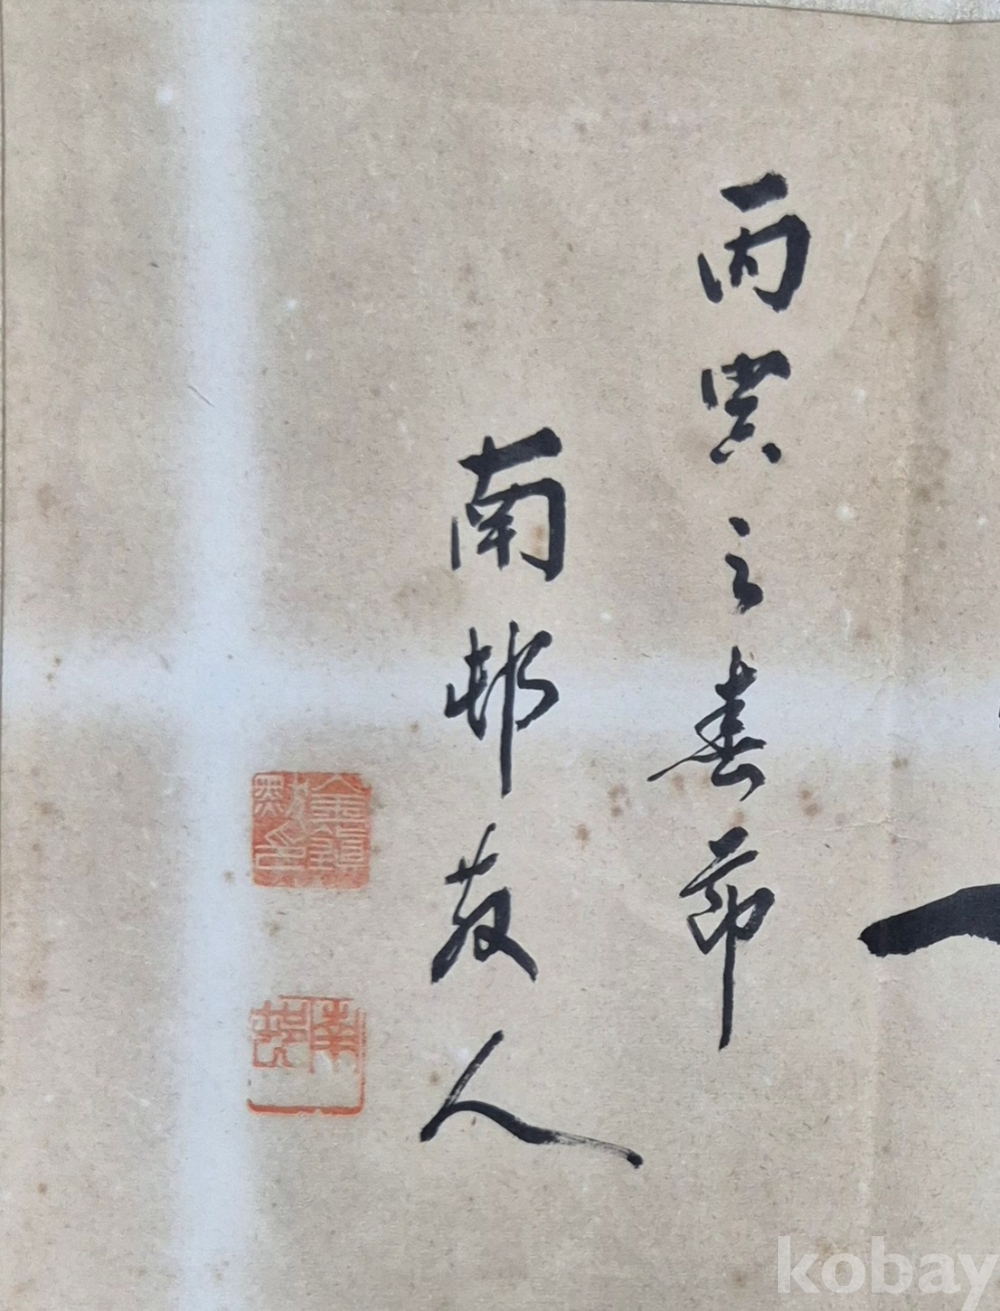 丙寅之春節
南邨散人
南邨